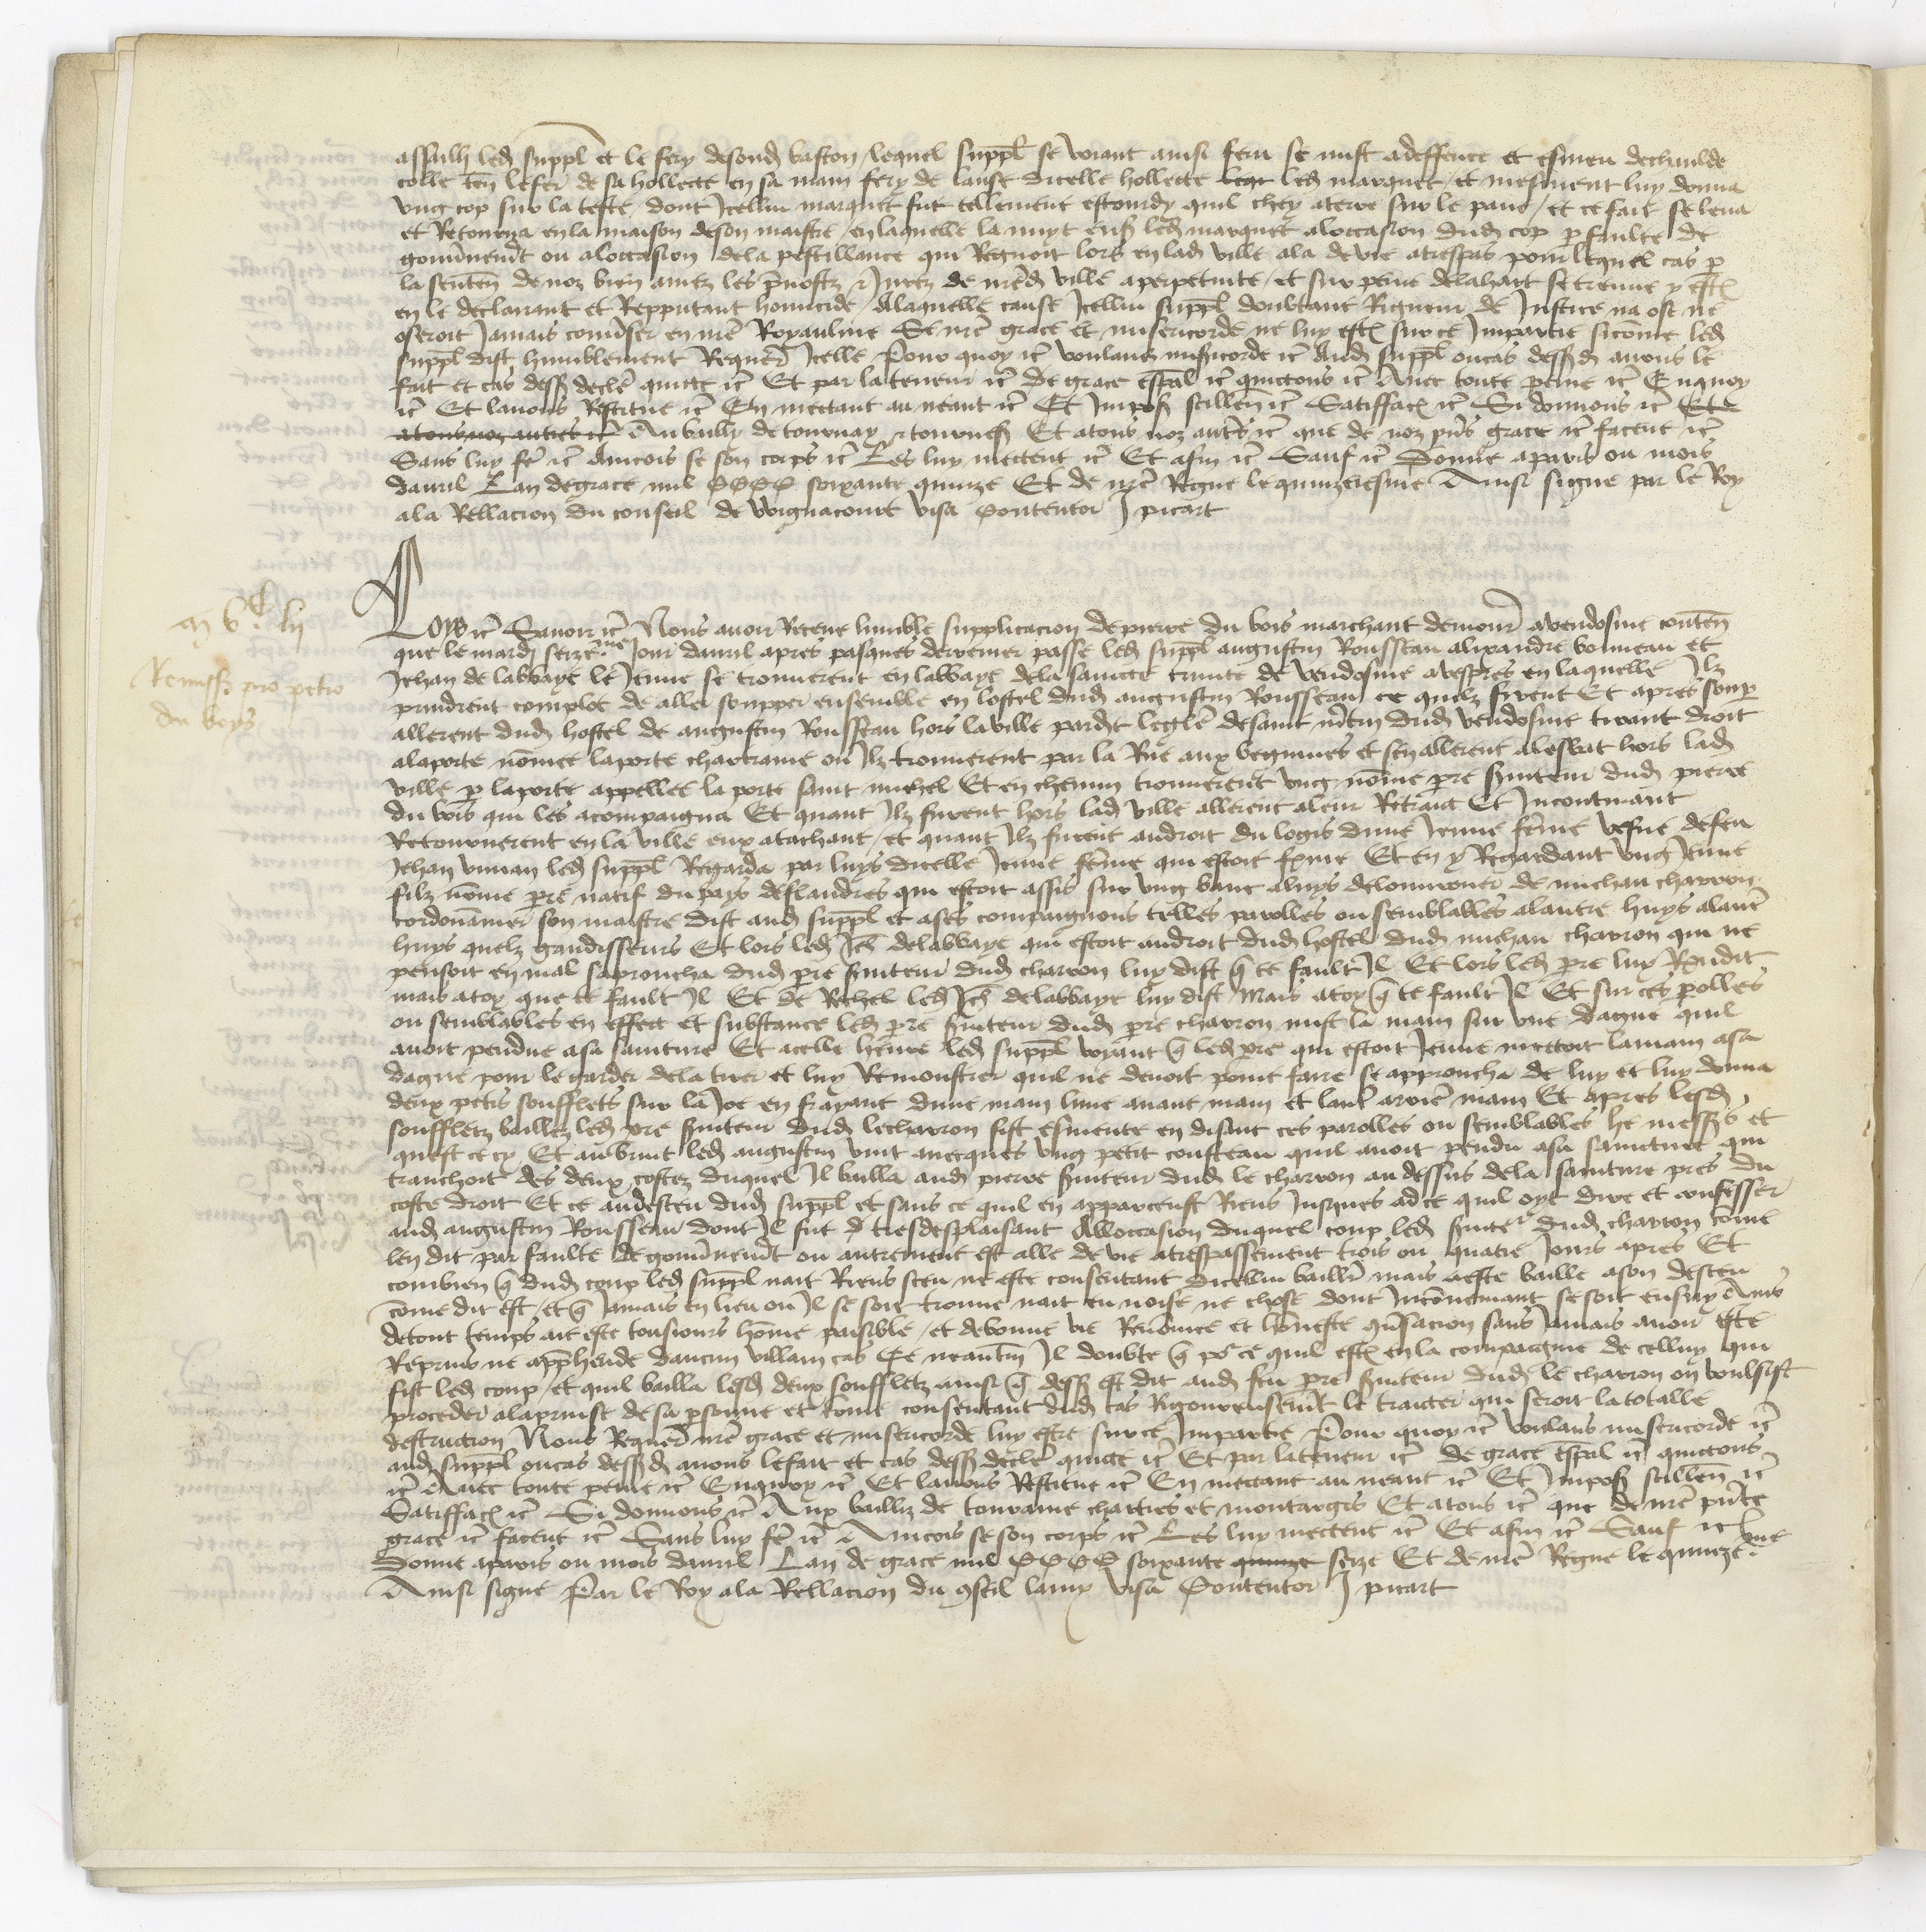 assailly led suppl et le fery de sond baston / lequel suppl se voiant ainsi feru se mist a deffence et esmeu de chaulde
colle ten le fer de sa hollecte en sa main fery de lanse dicelle hollecte led marquet / et mesment luy donna
ung cop sur la teste / dont Icellui marquet fut tellement estourdy quil chey a terre sur le pave / et ce fait se leva
et Retourna en la maison de son maistre / en laquelle la nuyt ens led marquet a loccasion dud cop p faulte de
gouvnemt ou a loccasion de la pestillance qui Regnoit lors en lad ville ala de vie a trespas pour lequel cas p
la senten de noz bien amez les pvostz & Jurez de nred ville a perpetuite / et sur peine de la hart se treuve y est
en le declairant et Repputant homicide / A laquelle cause Icellui suppl doubtant Rigueur de Justice na ose ne
oseroit Jamais conviser en nre Royaulme Se nre grace et misericorde ne luy est sur ce Impartie si comme led
suppl dist humblement Requer Icelle Pour quoy ic voulans misicorde ic Aud suppl ou cas dess d avons le
fait et cas dess decle quicte ic Et par la teneur ic de grace espal ic quictons ic Avec toute peine ic Enquoy
ic Et lavons Restitue ic En mectant au neant ic Et Impos scillen ic Satiffac ic Si donnons ic Et
a tous noz autres ic Au bailly de tournay & tournes Et a tous noz autrs ic que de noz pns grace ic facent ic
Sans luy fe ic Aincois se son corps ic Les luy mectent ic Et afin ic Sauf ic Donne a paris ou mois
davril Lan de grace mil CCCC soixante quinze Et de nre Regne le quinzeiesme Ainsi signe par le Roy
a la Rellacion du conseil de vvignacourt visa Contentor J picart
m vc lii
Remiss pro petro
du boys
Loys ic Savoir ic Nous avoir Receue lumble supplicacion de pierre du bois marchant demour a vendosme conten
que le mardi seize me Jour davril apres pasques derrenier passe led suppl augustin Rousseau alixandre bonneau et
Jehan de labbaye le Jeune se trouverent en labbaye de la saincte trinite de vendosme a vespres en laquelle Ilz
prindrent complot de aller soupper ensemble en lostel dud augustin Rousseau ce quilz firent Et apres soup
allerent dud hostel de augustin Rousseau hors la ville par dt leglise de saint mtin dud vendosme tirant droit
a la porte nomee la porte chartraine ou Ilz trouverent par la Rue aux beguines et sen allerent a lesbat hors lad
ville p la porte appellee la porte saint michel Et en chemin trouverent ung nome pre fuiteur dud pierre
du bois qui les acompaigna Et quant Ilz furent hors lad ville allerent a leur Retrait Et Incontinant
Retournerent en la ville eux atachant / et quant Ilz furent androit du logis dune Jeune feme vefve de feu
Jehan vivian led suppl Regarda par luys dicelle Jeune feme qui estoit ferme Et en y Regardant ung Jeune
filz nome pre natif du pays de flandres qui estoit assis sur ung banc a luys de louvrouer de michau charron
cordouannier son maistre dist aud suppl et a ses compaignons telles parolles ou semblables a lautre huys a laut
huys quelz gaudisseurs Et lors led Jeh de labbaye qui estoit androit dud hostel dud michau charron qui ne
pensoit en mal saproucha dud pre fuiteur dud charron luy dist q te fault Il Et lors led pre luy Rendit
mais a toy que te fault Il Et de Rechef led Jeh de labbaye luy dist Mais a toy q te fault Il Et sur ces polles
ou semblables en effect et substance led pre fuiteur dud pre charron mist la main sur une dague quil
avoit pendue a sa sainture Et a celle heure led suppl voyant q led pre qui estoit Jeune mettoit la main a sa
dague pour le garder de la tirer et luy Remonstrer quil ne devoit point faire se approucha de luy et luy donna
deux petis soufflets sur la Joe en frapant dune main lune avant main et laut arriere main Et apres lesd
souffletz baillez led pre fuiteur dud le charron fist esmeute en disant ces parolles ou semblables he messrs et
quest ce cy Et au bruit led augustin vint avecques ung petit cousteau quil avoit pendu a sa saincture qui
tranchoit des deux costez duquel Il bailla aud pierre fuiteur dud le charron au dessus de la sainture pres du
coste droit Et ce au desceu dud suppl et sans ce quil en apparceust Riens Jusques ad ce quil oyt dire et confesser
aud augustin Rousseau dont Il fut tres desplaisant A loccasion duquel coup led fuiteur dud charron come
len dit par faulte de gouvnemt ou autrement est alle de vie a trespassement trois ou quatre Jours apres Et
combien q dud coup led suppl nait Riens sceu ne este consentant dicellui bailler mais a este baille a son desceu
come dit est / et q Jamais en lieu ou Il se soit trouve nait eu noise ne chose dont Inconvenient se soit ensuy Ains
de tout temps ait este tousiours home paisible / et de bonne vie Renomee et honneste conversacion sans Jamais avoir este
Reprins ne apphende daucun villain cas Ce neantm Il doubte q pr ce quil est en la compaignie de celluy qui
fist led coup / et quil bailla lesd deux souffletz ainsi q dess est dit aud feu pre fuiteur dud le charron on voulsist
proceder a la prinse de sa psonne et come consentant dud cas Rigoureusemt le traicter qui seroit la totalle
destruction Nous Requer nre grace et misericorde luy estre sur ce Impartie Pour quoy ic voulans misericorde ic
aud suppl ou cas dess d avons le fait et cas dess decle quicte ic Et par la teneur ic de grace espal ic quictons
ic Avec toute peine ic Enquoy ic Et lavons Restitue ic En mectant au neant ic Et Impos scillen ic
Satiffac ic Si donnons ic Aux bailliz de touraine chartres et montargis Et a tous ic que de nre pnte
grace ic facent ic Sans luy fe ic Aincois se son corps ic Les luy mectent ic Et afin ic Sauf ic
Donne a paris ou mois davril Lan de grace mil CCCC soixante quinze seize Et de nre Regne le quinze me
Ainsi signe Par le Roy a la Rellacion du conseil lamy visa Contentor J picart